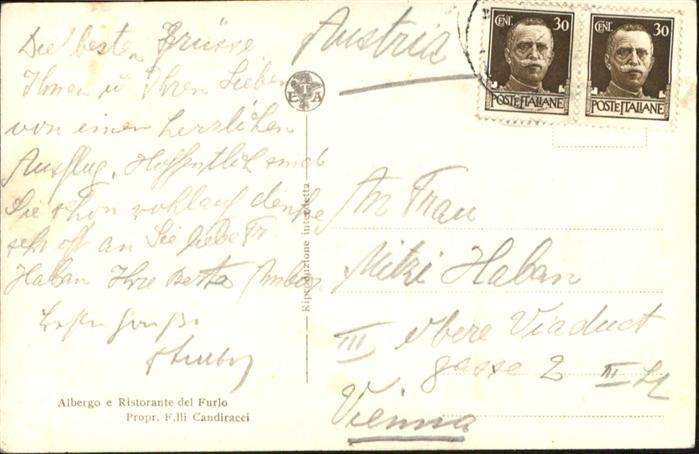 Die besten Grüsse
Ihnen u. Ihren Lieben
von einem herrlichen
Ausflug. Hoffentlich sind
Sie schon wohlauf denke
sehr oft an Sie liebe Fr.
Haban Ihre Betta
Austria
CENT. 30
POSTE ITALIANE
CENT. 30
POSTE ITALIANE
E A
Riproduzione interdetta
An Frau
Mitzi Haban
III Obere Viaduct
gasse 2 III
Vienna
Albergo e Ristorante del Furlo
Propr. F.lli Candiracci